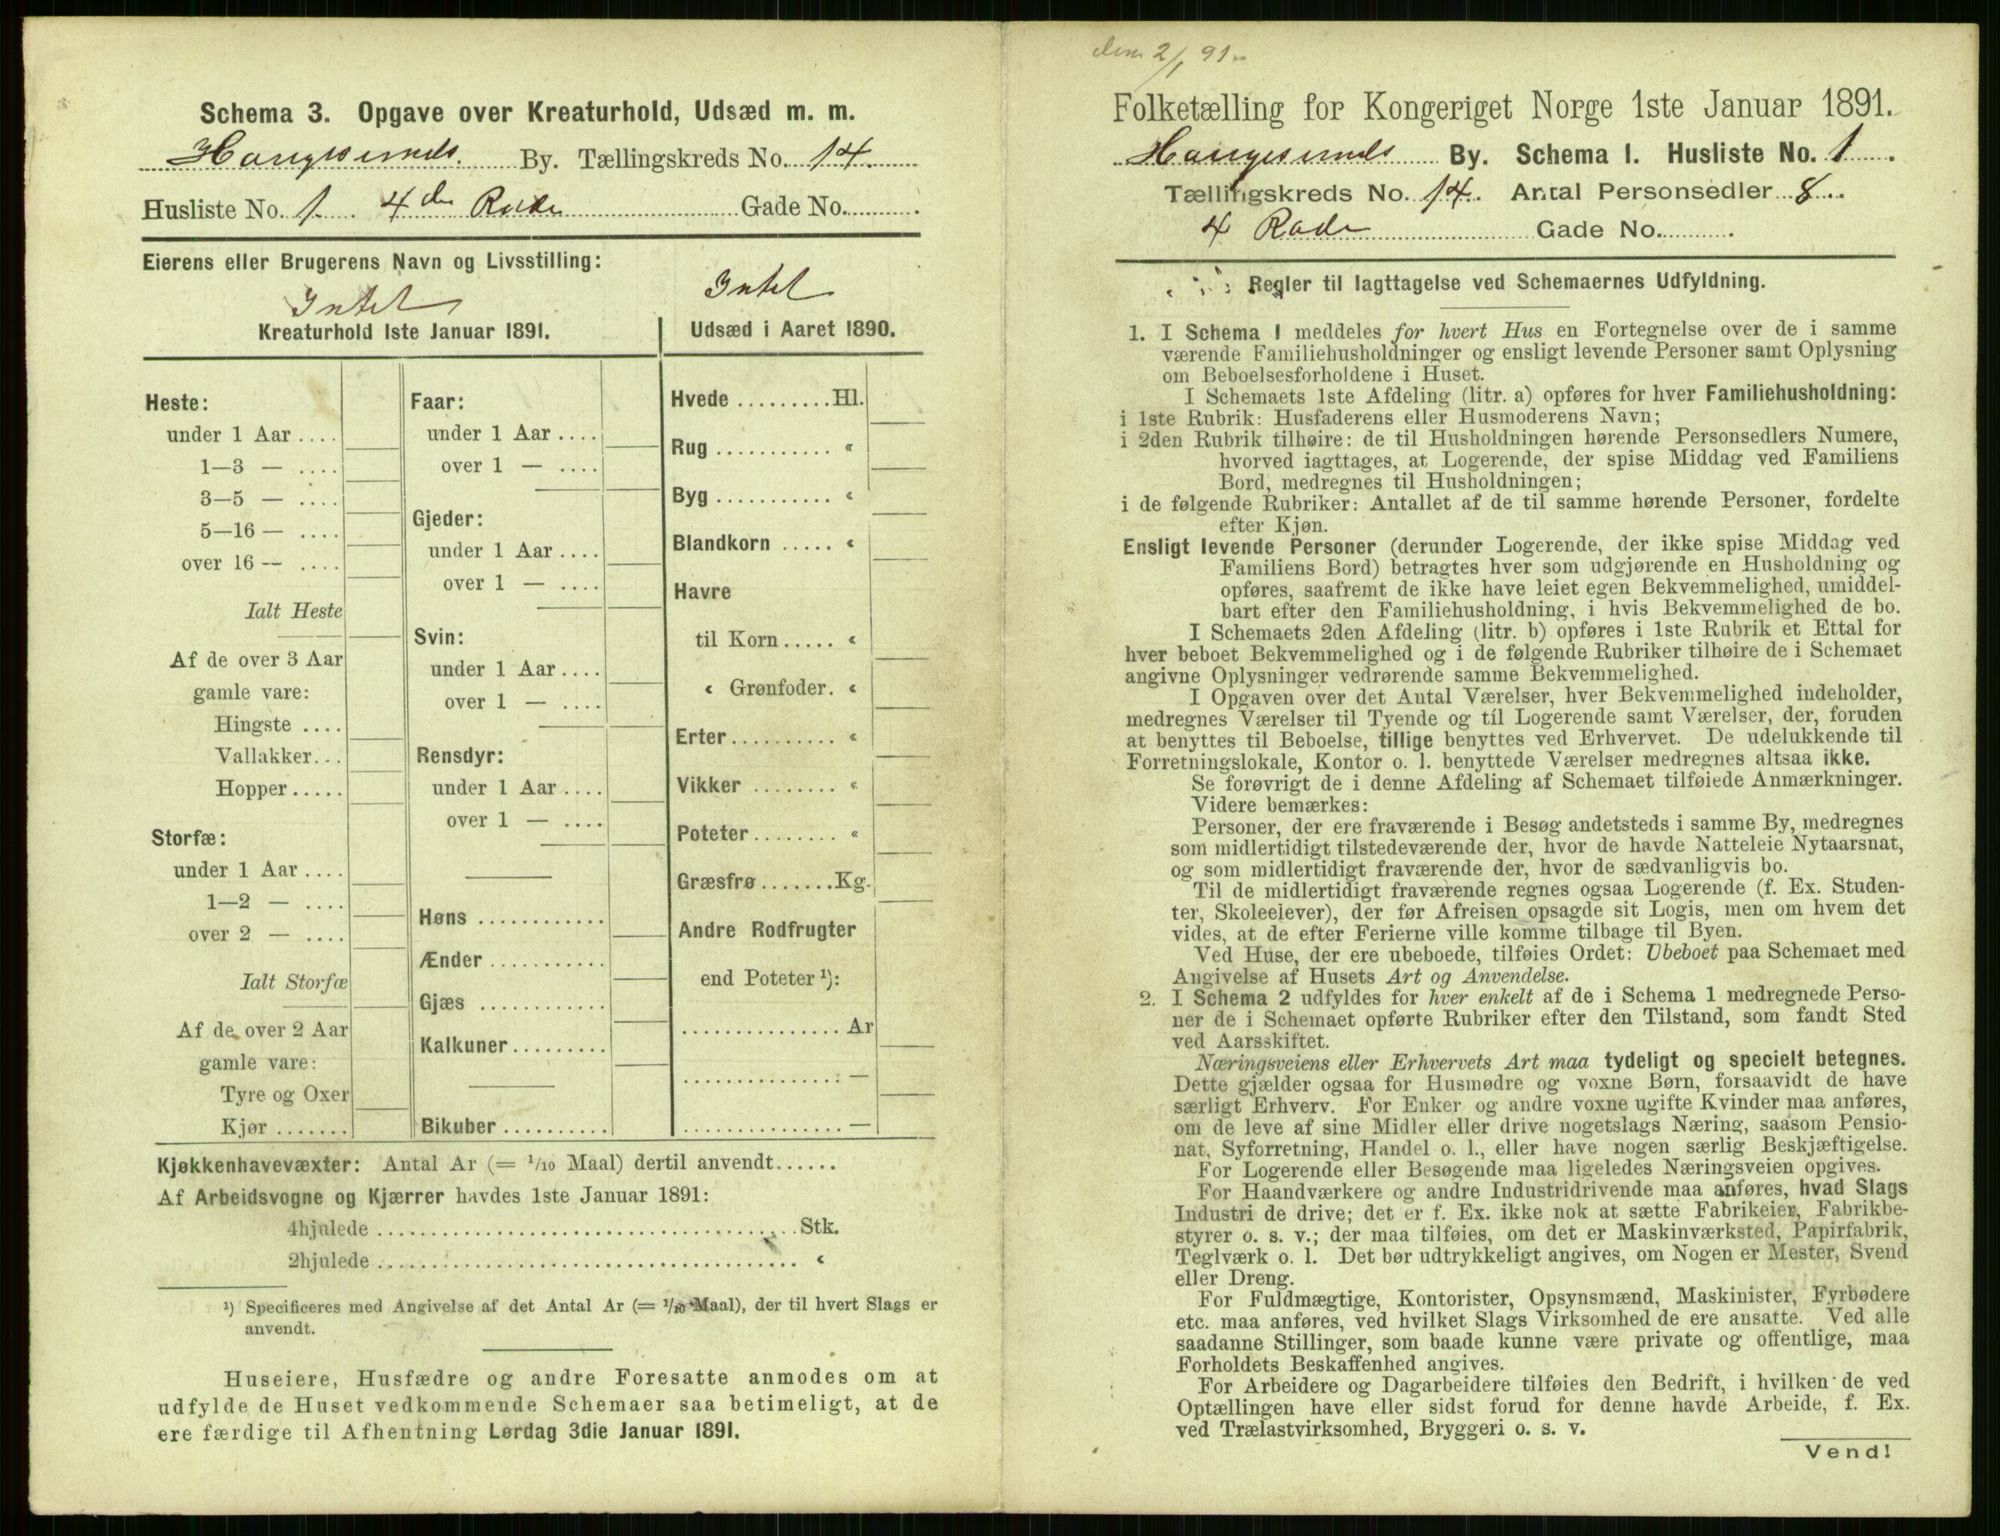 Schema 3. Opgave over Kreaturhold, Udsæd m. m.
Haugesunds By. Tællingskreds No. 14.
Husliste No. 1. 4de Rode Gade No.
Eierens eller Brugerens Navn og Livsstilling:
Intet
Intet
Kreaturhold 1ste Januar 1891.
Udsæd i Aaret 1890.
Heste:
under 1 Aar ....
1—3 — ....
3—5 — ....
5—16 — ....
over 16 — ....
Ialt Heste
Af de over 3 Aar
gamle vare:
Hingste ....
Vallakker...
Hopper.....
Storfæ:
under 1 Aar ....
1—2 — ....
over 2 — ....
Ialt Storfæ
Af de over 2 Aar
gamle vare:
Tyre og Oxer
Kjør .......
Faar:
under 1 Aar ....
over 1 — ....
Gjeder:
under 1 Aar ....
over 1 — ....
Svin:
under 1 Aar ....
over 1 — ....
Rensdyr:
under 1 Aar ....
over 1 — ....
Høns ............
Ænder ...........
Gjæs ............
Kalkuner.........
Bikuber ..........
Hvede .........Hl.
Rug ........... «
Byg ........... «
Blandkorn ..... «
Havre
til Korn ..... «
« Grønfoder. «
Erter.......... «
Vikker ........ «
Poteter........ «
Græsfrø.......Kg.
Andre Rodfrugter
end Poteter ¹):
............... Ar
............... —
............... —
Kjøkkenhavevæxter: Antal Ar (= 1/10 Maal) dertil anvendt......
Af Arbeidsvogne og Kjærrer havdes 1ste Januar 1891:
4hjulede ....................................... Stk.
2hjulede ....................................... «
¹) Specificeres med Angivelse af det Antal Ar (= 1/10 Maal), der til hvert Slags er
anvendt.
Huseiere, Husfædre og andre Foresatte anmodes om at
udfylde de Huset vedkommende Schemaer saa betimeligt, at de
ere færdige til Afhentning Lørdag 3die Januar 1891.
den 2/1 91
Folketælling for Kongeriget Norge 1ste Januar 1891.
Haugesunds By. Schema 1. Husliste No. 1
Tællingskreds No. 14. Antal Personsedler 8
4 Rode Gade No.
Regler til Iagttagelse ved Schemaernes Udfyldning.
1. I Schema 1 meddeles for hvert Hus en Fortegnelse over de i samme
værende Familiehusholdninger og ensligt levende Personer samt Oplysning
om Beboelsesforholdene i Huset.
I Schemaets 1ste Afdeling (litr. a) opføres for hver Familiehusholdning:
i 1ste Rubrik: Husfaderens eller Husmoderens Navn;
i 2den Rubrik tilhøire: de til Husholdningen hørende Personsedlers Numere,
hvorved iagttages, at Logerende, der spise Middag ved Familiens
Bord, medregnes til Husholdningen;
i de følgende Rubriker: Antallet af de til samme hørende Personer, fordelte
efter Kjøn.
Ensligt levende Personer (derunder Logerende, der ikke spise Middag ved
Familiens Bord) betragtes hver som udgjørende en Husholdning og
opføres, saafremt de ikke have leiet egen Bekvemmelighed, umiddel-
bart efter den Familiehusholdning, i hvis Bekvemmelighed de bo.
I Schemaets 2den Afdeling (litr. b) opføres i 1ste Rubrik et Ettal for
hver beboet Bekvemmelighed og i de følgende Rubriker tilhøire de i Schemaet
angivne Oplysninger vedrørende samme Bekvemmelighed.
I Opgaven over det Antal Værelser, hver Bekvemmelighed indeholder,
medregnes Værelser til Tyende og til Logerende samt Værelser, der, foruden
at benyttes til Beboelse, tillige benyttes ved Erhvervet. De udelukkende til
Forretningslokale, Kontor o. l. benyttede Værelser medregnes altsaa ikke.
Se forøvrigt de i denne Afdeling af Schemaet tilføiede Anmærkninger.
Videre bemærkes:
Personer, der ere fraværende i Besøg andetsteds i samme By, medregnes
som midlertidigt tilstedeværende der, hvor de havde Natteleie Nytaarsnat,
og som midlertidigt fraværende der, hvor de sædvanligvis bo.
Til de midlertidigt fraværende regnes ogsaa Logerende (f. Ex. Studen-
ter, Skoleelever), der før Afreisen opsagde sit Logis, men om hvem det
vides, at de efter Ferierne ville komme tilbage til Byen.
Ved Huse, der ere ubeboede, tilføies Ordet: Ubeboet paa Schemaet med
Angivelse af Husets Art og Anvendelse.
2. I Schema 2 udfyldes for hver enkelt af de i Schema 1 medregnede Perso-
ner de i Schemaet opførte Rubriker efter den Tilstand, som fandt Sted
ved Aarsskiftet.
Næringsveiens eller Erhvervets Art maa tydeligt og specielt betegnes.
Dette gjælder ogsaa for Husmødre og voxne Børn, forsaavidt de have
særligt Erhverv. For Enker og andre voxne ugifte Kvinder maa anføres,
om de leve af sine Midler eller drive nogetslags Næring, saasom Pensio-
nat, Syforretning, Handel o. l., eller have nogen særlig Beskjæftigelse.
For Logerende eller Besøgende maa ligeledes Næringsveien opgives.
For Haandværkere og andre Industridrivende maa anføres, hvad Slags
Industri de drive; det er f. Ex. ikke nok at sætte Fabrikeier, Fabrikbe-
styrer o. s. v.; der maa tilføies, om det er Maskinværksted, Papirfabrik,
Teglværk o. l. Det bør udtrykkeligt angives, om Nogen er Mester, Svend
eller Dreng.
For Fuldmægtige, Kontorister, Opsynsmænd, Maskinister, Fyrbødere
etc. maa anføres, ved hvilket Slags Virksomhed de ere ansatte. Ved alle
saadanne Stillinger, som baade kunne være private og offentlige, maa
Forholdets Beskaffenhed angives.
For Arbeidere og Dagarbeidere tilføies den Bedrift, i hvilken de ved
Optællingen have eller sidst forud for denne havde Arbeide, f. Ex.
ved Trælastvirksomhed, Bryggeri o. s. v.
Vend!